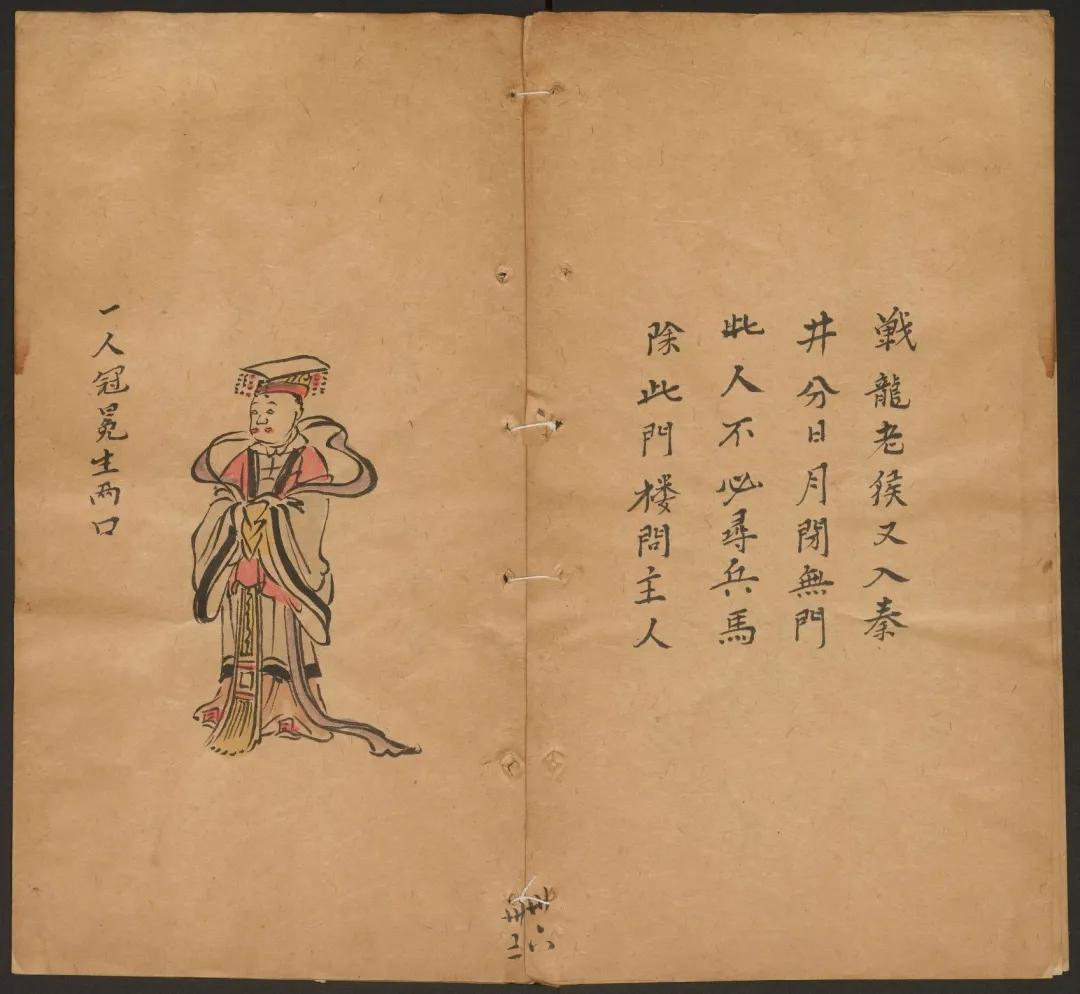 戦龍老猴又入秦
井分日月閉無門
此人不必尋兵馬
除此門楼問主人
一人冠冕生两口